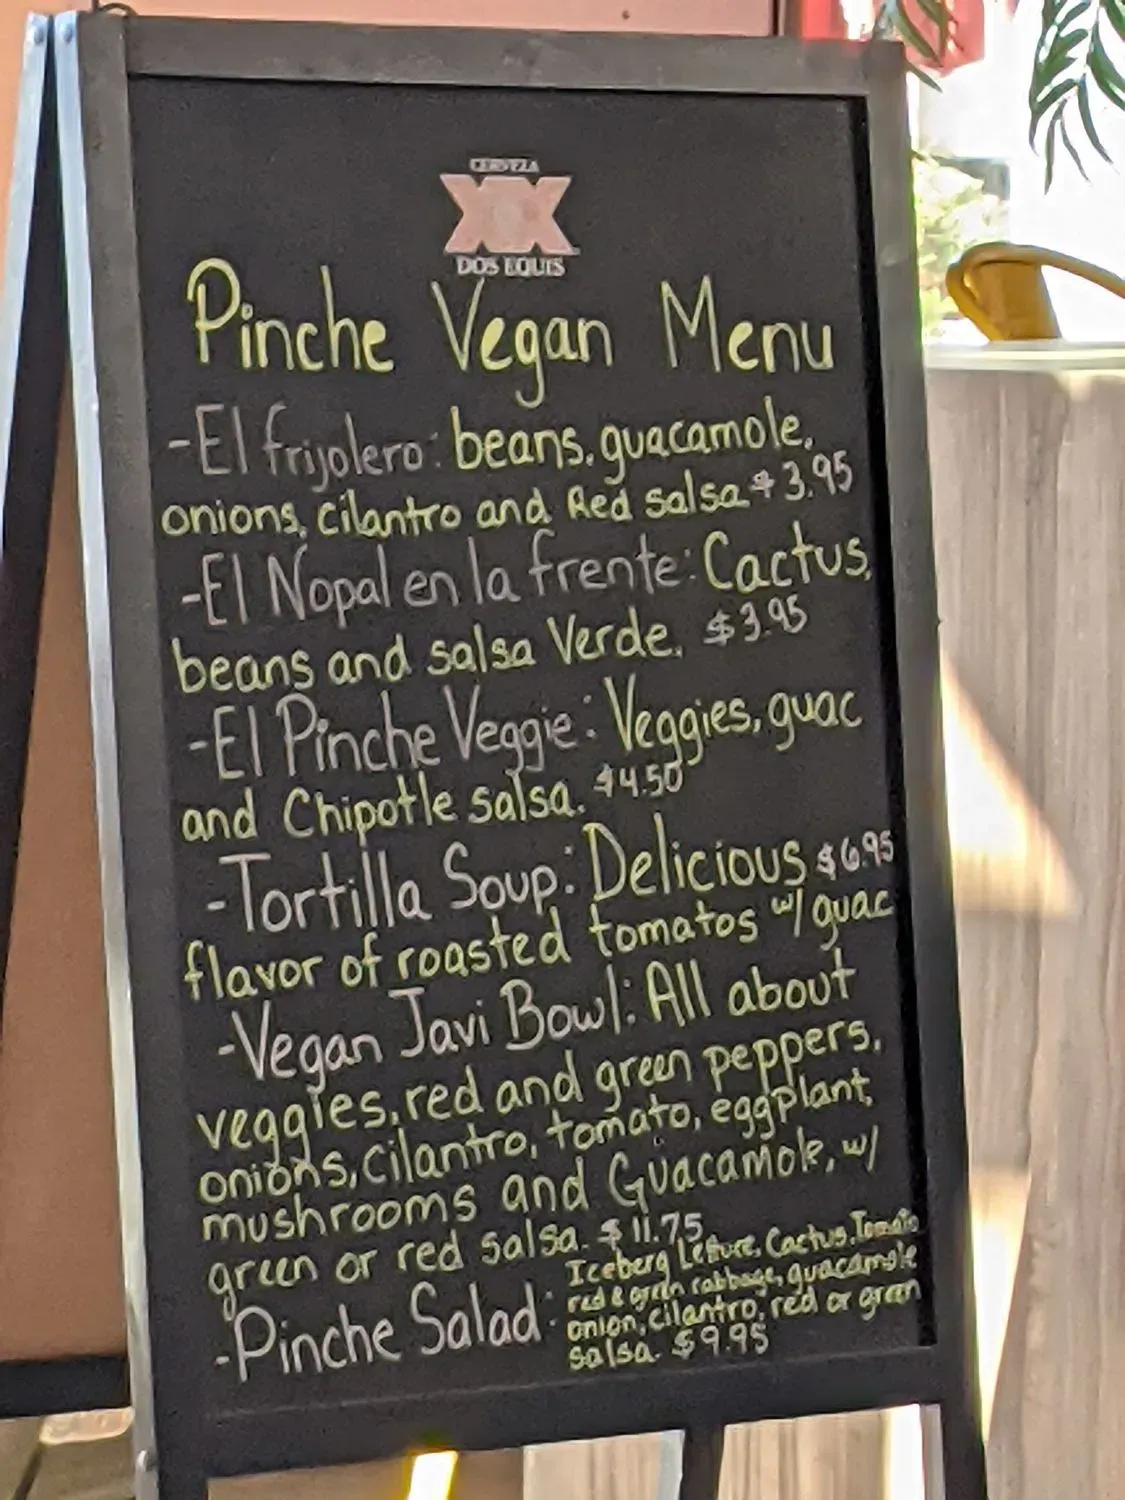 CERVEZA
XX
DOS EQUIS
Pinche Vegan Menu
-El frijolero: beans, guacamole,
onions, cilantro and Red salsa $3.95
-El Nopal en la frente: Cactus,
beans and salsa Verde. $3.95
-El Pinche Veggie: Veggies, guac
and Chipotle salsa. $4.50
-Tortilla Soup: Delicious $6.95
flavor of roasted tomatos w/ guac
-Vegan Javi Bowl: All about
veggies, red and green peppers,
onions, cilantro, tomato, eggplant,
mushrooms and Guacamole, w/
green or red salsa. $11.75
-Pinche Salad: Iceberg Letture, Cactus, Tomato
red & green cabbage, guacamole
onion, cilantro, red or green
salsa. $9.95